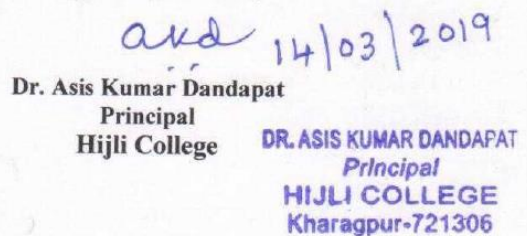 akd 14/03/2019
Dr. Asis Kumar Dandapat
Principal
Hijli College
DR. ASIS KUMAR DANDAPAT
Principal
HIJLI COLLEGE
Kharagpur-721306